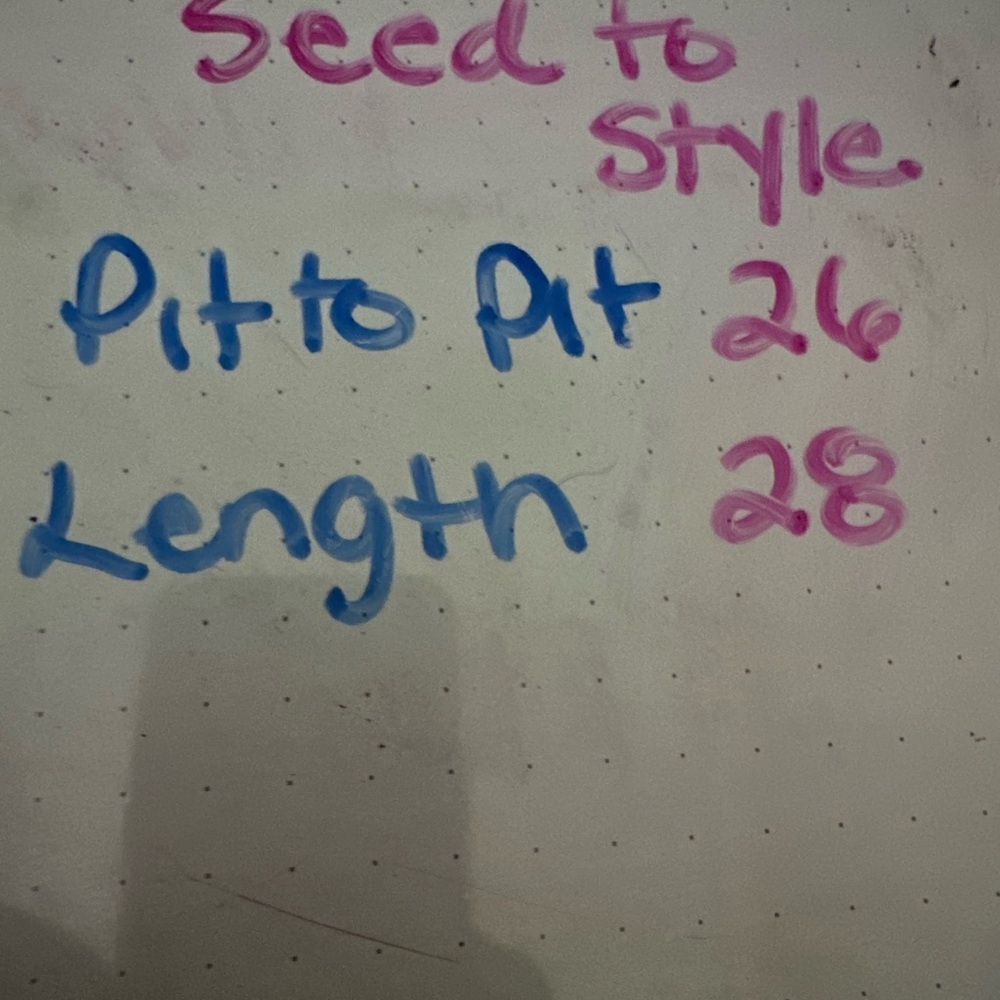 Seed to
Style
Pit to Pit 26
Length 28